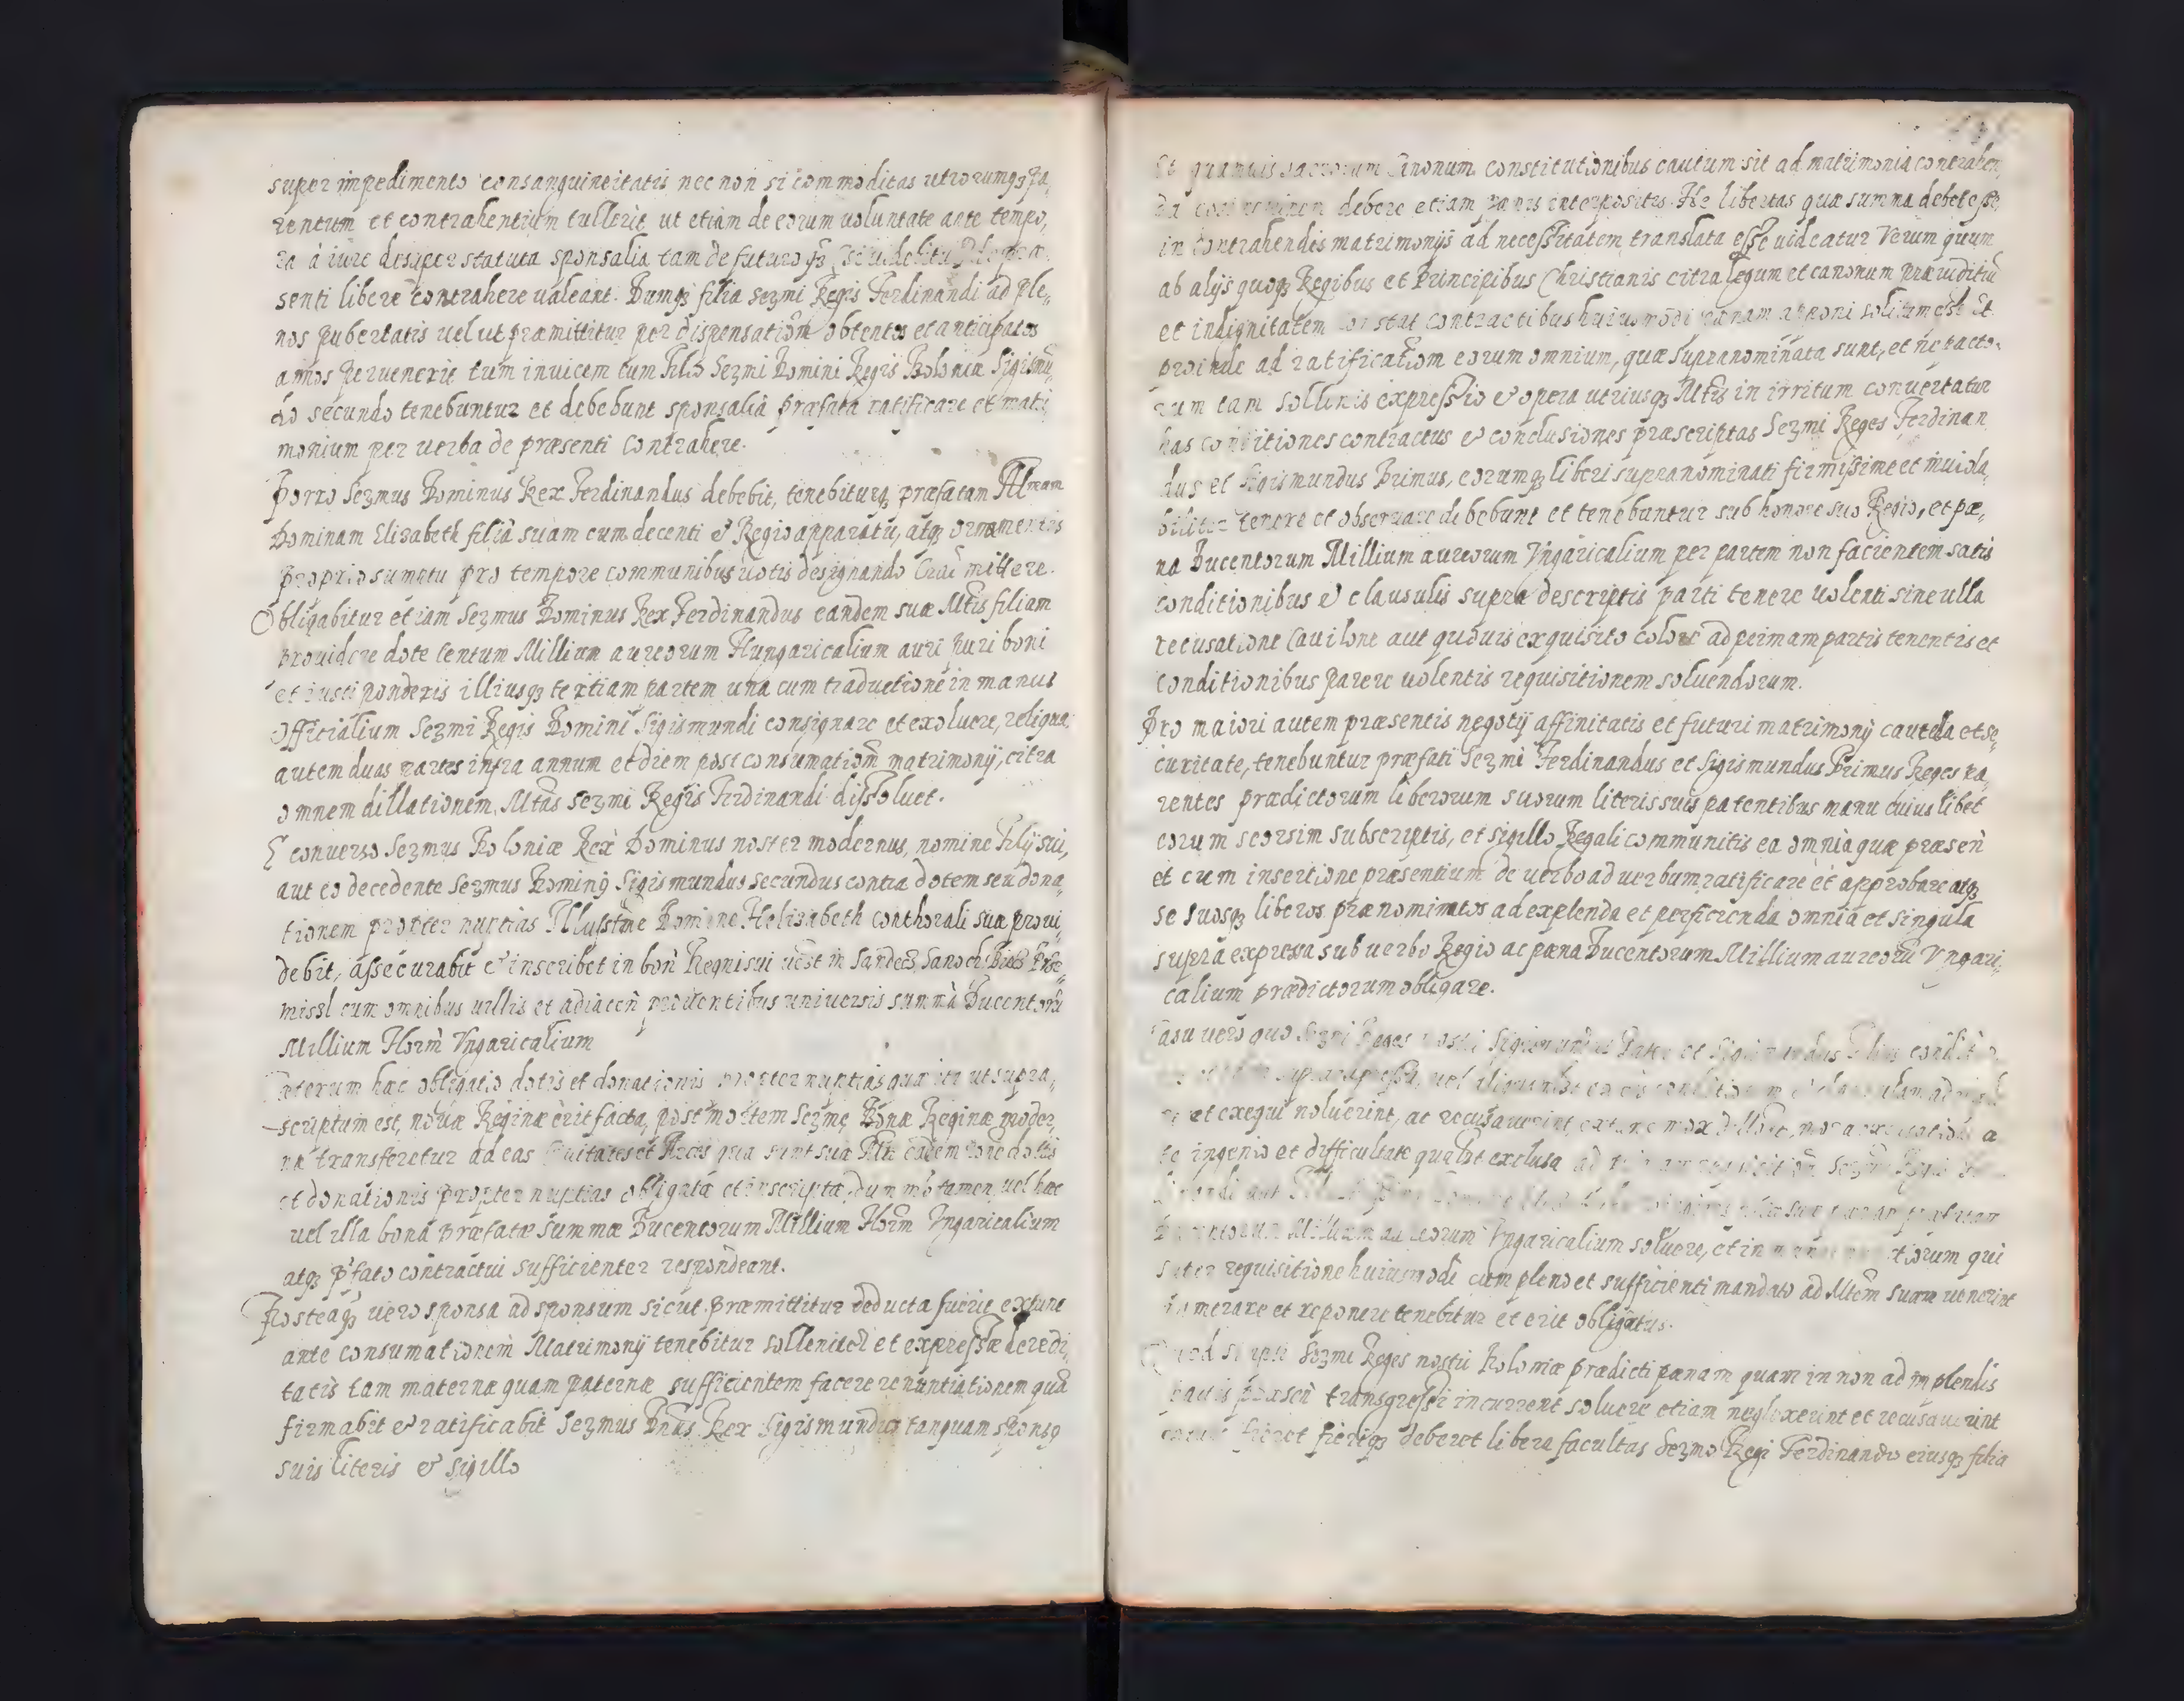 super impedimento consanguineitatis nec non si commoditas utrorumqȝ pa,
rentum et contrahentium tullerit ut etiam de eorum uoluntate ante tempo,
ra à iure desuper statuta sponsalia tam de futuro qȝ
senti libere contrahere ualeant. Dumqȝ filia Sezmi Regis Ferdinandi ad ple,,
nos pubertatis uel ut præmittitur per dispensatiom obtentos et anticipatos
annos peruenerit tum inuicem cum Filio Sezmi Domini Regis Poloniæ Sigismũ,
do secundo tenebuntur et debebunt sponsalia præfata ratificare et matri,
monium per uerba de præsenti contrahere.
Porro Sezmus Dominus Rex Ferdinandus debebit, tenebiturqȝ præfatam Illream
Dominam Elizabeth filiã suam cum decenti & Regio apparatu, atqȝ ornamentis
proprio sumptu pro tempore communibus uotis designando Crac mittere.
Obligabitur etiam Sezmus Dominus Rex Ferdinandus eandem suæ Mtis filiam
prouidere dote Centum Millium aureorum Hungaricalium auri puri boni
et iusti ponderis illiusqȝ tertiam partem una cum traductione in manus
Officialium Sezmi Regis Domini Sigismundi consignare et exoluere, reliqua,
autem duas partes infra annum et diem post consumatiom matrimonij, citra
omnem dillationem, Mtas Sezmi Regis Ferdinandi dissoluet.
E conuerso Sezmus Poloniæ Rex Dominus noster modernus, nomine Filij sui,
aut eo decedente Sezmus Dominus Sigismundus secundus contra dotem seu dona,
tionem propter nuptias Illustme Domine Helisabeth conthorali suæ proui,
debit, assecurabit & inscribet in bon Regni sui uest in Sandecz, Sanoch, Biecz Prze,
missl cum omnibus uillis et adiacen prouentibus uniuersis summã Ducentorũ
Millium Florm Vngaricalium
Ceterum hæc obligatio dotis et donationis propter nuptias quæ iti ut supra,
scriptum est, nouæ Reginæ erit facta, post mortem Sezme Bonæ Reginæ moder,
næ transferetur ad eas Ciuitates et Arces quæ sunt suæ Mti eadem iure dotis
et donationis propter nuptias obligatæ et inscriptæ, dummodo tamen uel hæc
uel illa bona præfatæ summæ Ducentorum Millium Florm Vngaricalium
atqȝ p̃fato contractui sufficienter respondeant.
Posteaqȝ uero sponsa ad sponsum sicut præmittitur deducta fuerit extunc
ante consumationem Matrimonij tenebitur solleniter et expressæ de redi,
tatis tam maternæ quam paternæ sufficientem facere renuntiationem quã
firmabit & ratificabit Sezmus Dnus Rex Sigismundus tanquam sponso
suis literis & sigillo
Et quamuis sacrorum Canonum constitutionibus cautum sit ad matrimonia contrahen,
da debere etiam pænis interpositis. Ne libertas quæ summa debet esse,
in contrahendis matrimonijs ad necessitatem translata esse uideatur Verum quum
ab alijs quoqȝ Regibus et Principibus Christianis citra legum et canonum præiuditiũ
et indignitatem constat contractibus huiusmodi pænam apponi solitum est Et
proinde ad ratificatiom eorum omnium, quæ supranominata sunt, et ne tracta,
tum tam sollenis expressio & opera utriusqȝ Mtis in irritum conuertatur
has conditiones contractus & conclusiones præscriptas Sezmi Reges Ferdinan
dus et Sigismundus Primus, eorumqȝ liberi supranominati firmissime et inuiola,
biliter tenere et obseruare debebunt et tenebuntur sub honore suo Regio, et pæ,
na Ducentorum Millium aureorum Vngaricalium per partem non facientem satis
conditionibus & clausulis supra descriptis parti tenere uolenti sine ulla
recusatione Cauilone aut quouis exquisito colore ad primam partis tenentis et
conditionibus parere uolentis requisitionem soluendorum.
Pro maiori autem præsentis negotij affinitatis et futuri matrimonij cautela et se,
curitate, tenebuntur præfati Sezmi Ferdinandus et Sigismundus Primus Reges pa,
rentes prædictorum liberorum suorum literis suis patentibus manu cuiuslibet
eorum seorsim subscriptis, et sigillo Regali communitis ea omnia quæ præsen
et cum insertione præsentium de uerbo ad uerbum ratificare et approbare atqȝ
se suosqȝ liberos prænominatos ad explenda et perficienda omnia et singula
supra expressa sub uerbo Regio ac pæna Ducentorum Millium aureorũ Vngari,
calium prædictorum obligare.
Casu uero quo Sezmi Reges nostri Sigismundus Pater et Sigismundus Filius
supraexpressa, uel
et exequi noluerint, ac recusauerint, extunc mox
ingenio et difficultate qualbt exclusa ad
Ducentorum Millium aureorum Vngaricalium soluere, et in qui
super requisitione huiusmodi cum pleno et sufficienti mandato ad Mtem suam uenerint
numerare et reponere tenebitur et erit obligatus.
Quod si ipsi Sezmi Reges nostri Poloniæ prædicti pænam quam in non adimplendis
pactis præsen transgressi incurrent soluere etiam neglexerint et recusauerint
fieret fieriqȝ deberet libera facultas Sezmo Regi Ferdinando eiusqȝ filia